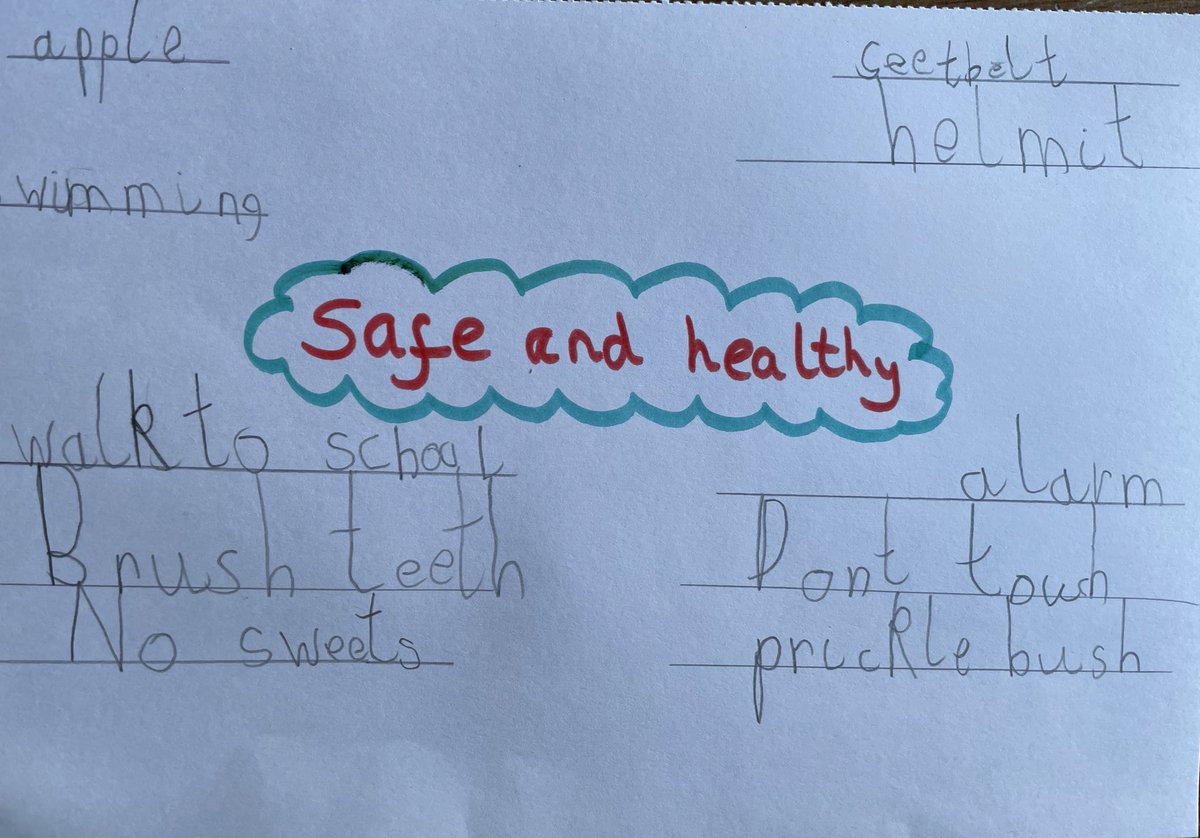 apple
wimming
Seetbelt
helmit
Safe and healthy
walk to school
Brush teeth
No sweets
alarm
Dont toush
prickle bush